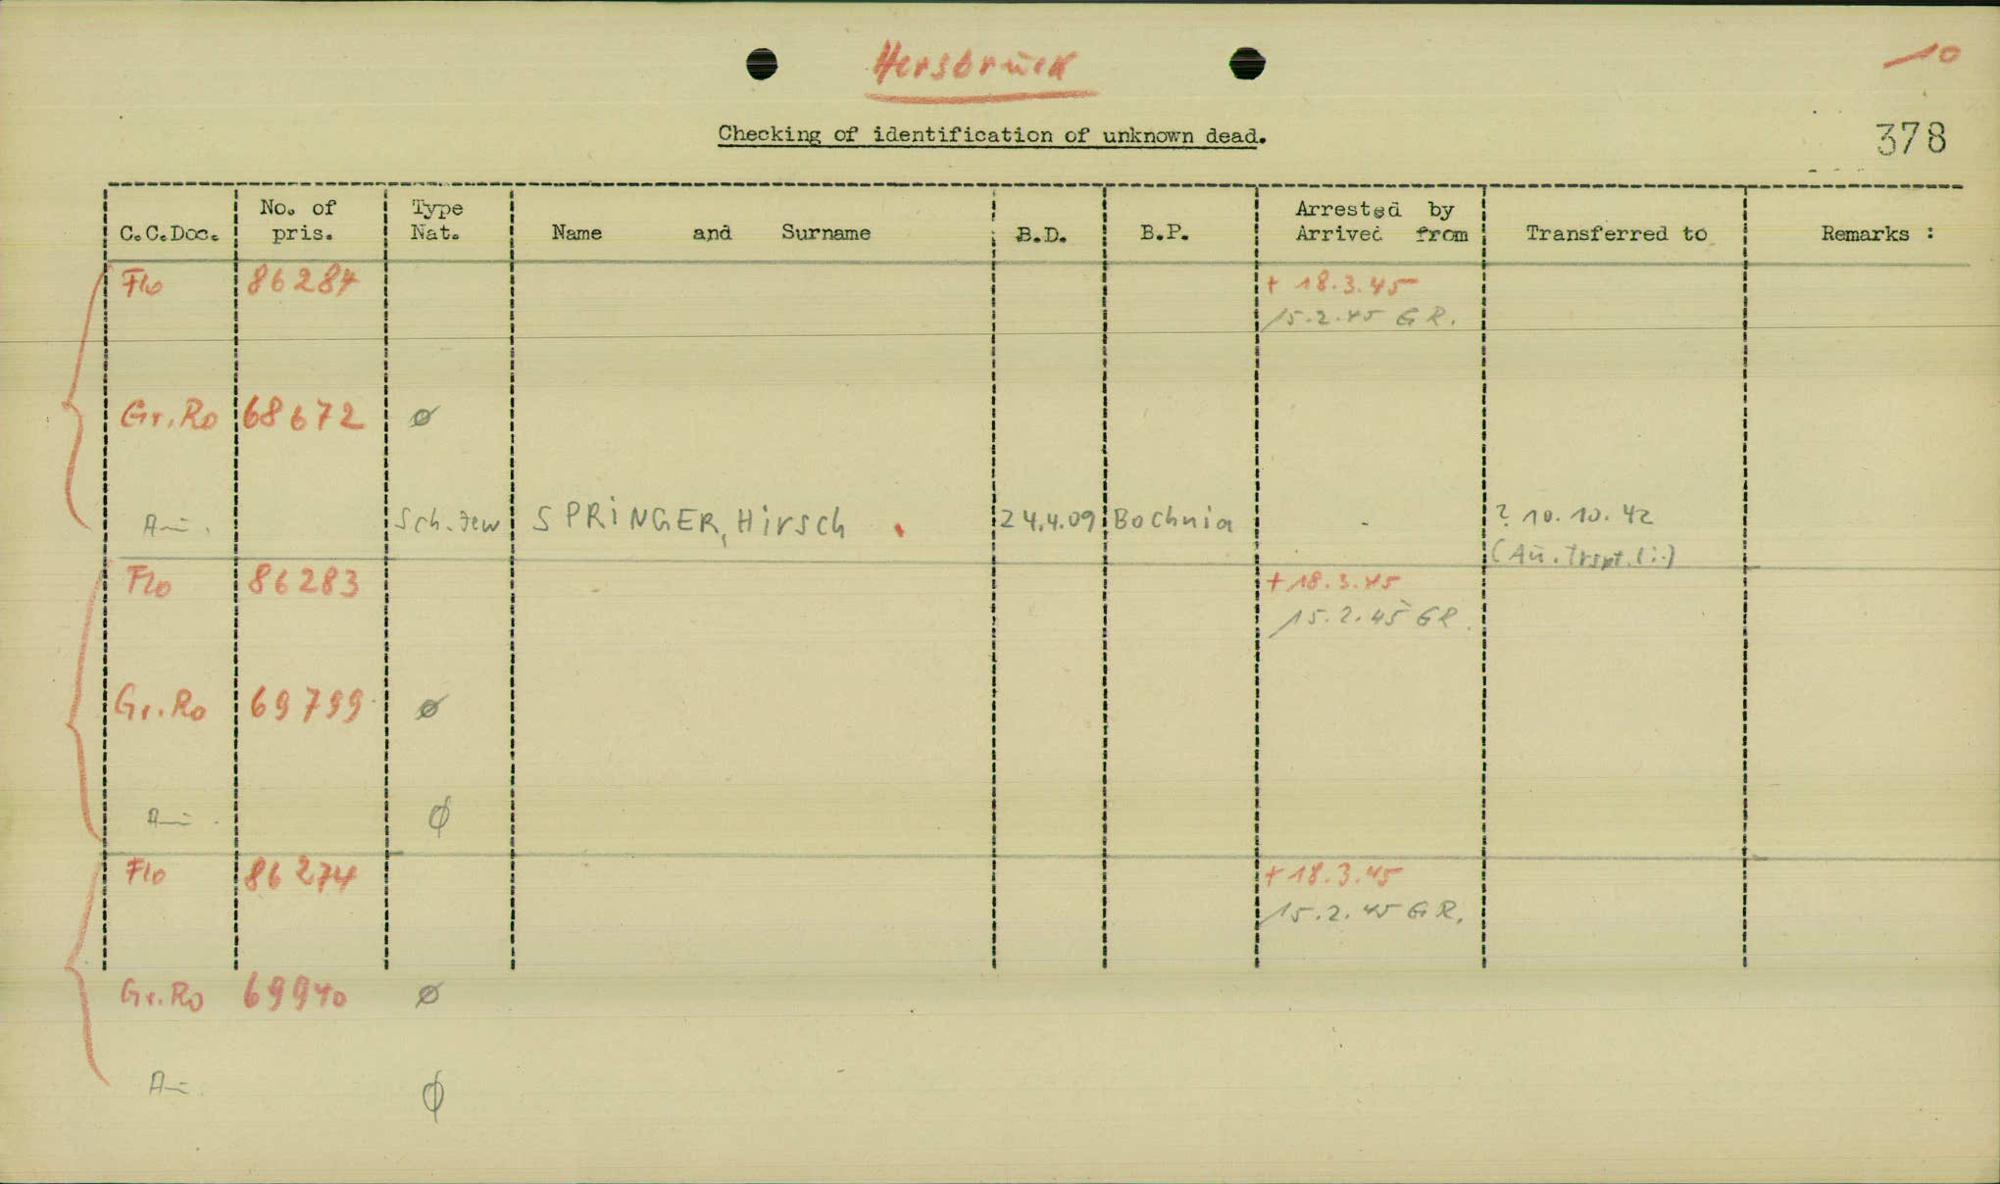 Hersbruck
10
Checking of identification of unknown dead.
378
C.C.Doc. No. of pris. Type Nat. Name and Surname B.D. B.P. Arrested by Arrived from Transferred to Remarks :
Flo 86284 + 18.3.45
15.2.45 GR.
Gr.Ro 68672 ø
Au. Sch.Jew SPRINGER, Hirsch 24.4.09 Bochnia - ? 10.10.42
(Au. Trspt.li.)
Flo 86283 + 18.3.45
15.2.45 GR.
Gr.Ro 69799 ø
Au. ø
Flo 86274 + 18.3.45
15.2.45 GR.
Gr.Ro 69940 ø
Au. ø